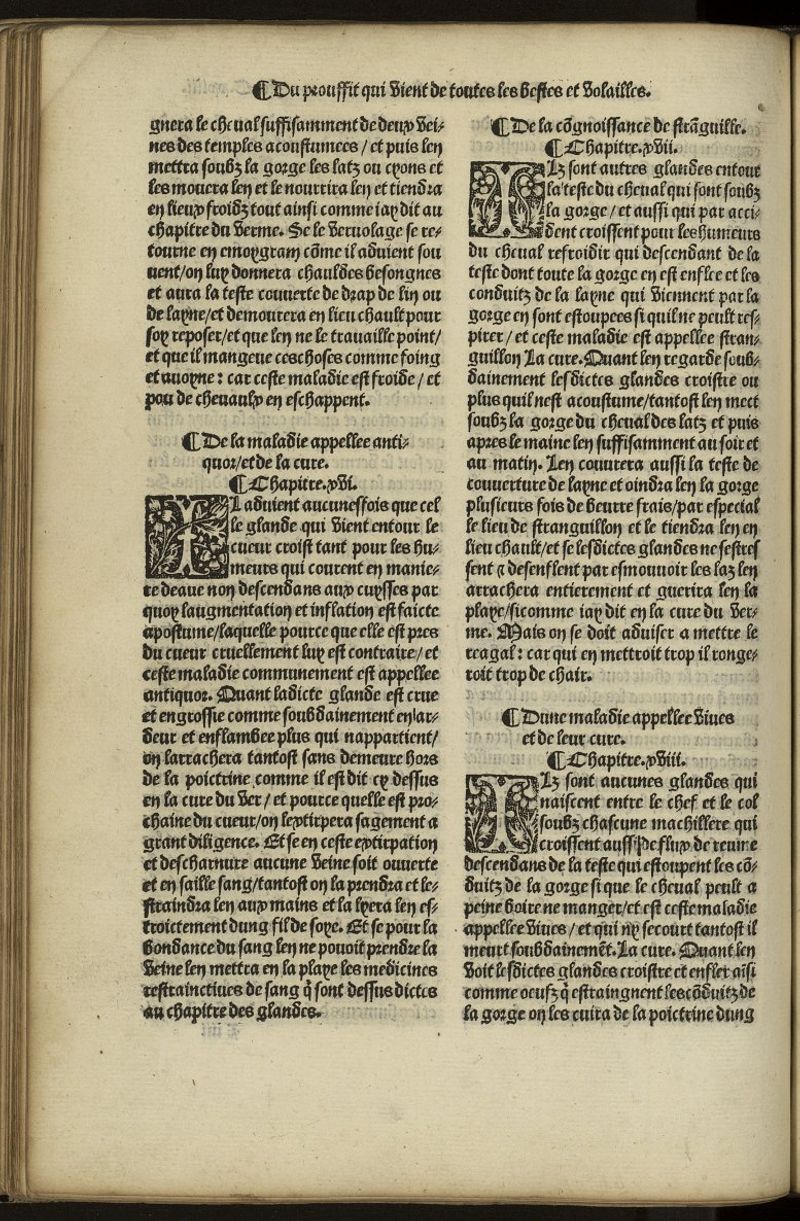 ¶ Du prouffit qui vient de toutes les bestes et volailles.
gnera le cheual suffisamment de deux vei⸗
nes des temples acoustumees / et puis len
mettra soubz la gorge les latz ou cyons et
les mouera len et le nourrira len et tiendra
en lieux froidz tout ainsi comme iay dit au
chapitre du verme. Se le vervolage se re⸗
tourne en emoygram cōme il aduient sou
uent/on luy donnera chauldes besongnes
et aura la teste couuerte de drap de lin ou
de layne/et demourera en lieu chault pour
soy reposer/et que len ne le trauaille point/
et que il mangeue ces choses comme foing
et auoyne : car ceste maladie est froide / et
pou de cheuaulx en eschappent.
¶ De la maladie appellee anti⸗
quor/et de la cure.
¶ Chapitre.vi.
Il aduient aucunesfois que cel
le glande qui vient entour le
cueur croist tant pour les hu⸗
meurs qui courent en manie⸗
re deaue non descendans aux cuysses par
quoy laugmentation et inflation est faicte
apostume/laquelle pource que elle est pres
du cueur cruellement luy est contraire/ et
ceste maladie communement est appellee
antiquor. Quant ladicte glande est crue
et engrossie comme soubdainement en lar⸗
deur et enflambee plus qui nappartient/
on larrachera tantost sans demeure hors
de la poictrine comme il est dit cy dessus
en la cure du ver / et pource quelle est pro⸗
chaine du cueur/on lextirpera sagement a
grant diligence. Et se en ceste extirpation
et descharnure aucune veine soit ouuerte
et en saille sang/tantost on la prendra et le⸗
straindra len aux mains et la lyera len es⸗
troictement dung fil de soye. Et se pour la
bondance du sang len ne pouoit prendre la
veine len mettra en la playe les medicines
restrainctiues de sang q̄ sont dessus dictes
au chapitre des glandes.
¶ De la cōgnoissance de strāguille.
¶ Chapitre.vii.
Ilz sont autres glandes entour
la teste du cheual qui sont soubz
la gorge / et aussi qui par acci⸗
dent croissent pour les humeurs
du cheual refroidir qui descendant de la
teste dont toute la gorge en est enflee et les
conduitz de la layne qui viennent par la
gorge en sont estoupees si quil ne peult res⸗
pirer / et ceste maladie est appellee stran⸗
guillon La cure. Quant len regarde soub⸗
dainement lesdictes glandes croistre ou
plus quil nest acoustume/tantost len mect
soubz la gorge du cheual des latz et puis
apres le maine len suffisamment au soir et
au matin. Len couurera aussi la teste de
couuerture de layne et oindra len la gorge
plusieurs fois de beurre frais/par especial
le lieu de stranguillon et le tiendra len en
lieu chault/et se lesdictes glandes ne sestres
sent ⁊ desenflent par esmouuoir les laz len
arrachera entierement et guerira len la
playe/sicomme iay dit en la cure du ver⸗
me. Mais on se doit aduiser a mettre le
reagal : car qui en mettroit trop il ronge⸗
roit trop de chair.
¶ Dune maladie appellee viues
et de leur cure.
¶ Chapitre.viii.
Ilz sont aucunes glandes qui
naiscent entre le chef et le col
soubz chascune machillere qui
croissent aussi de flux de reume
descendans de la teste qui estoupent les cō⸗
duitz de la gorge si que le cheual peult a
peine boire ne manger/et est ceste maladie
appellee viues / et qui ny secourt tantost il
meurt soubdainemēt. La cure. Quant len
voit lesdictes glandes croistre et enfler aīsi
comme oeufz q̄ estraingnent les cōduitz de
la gorge on les cuira de la poictrine dung